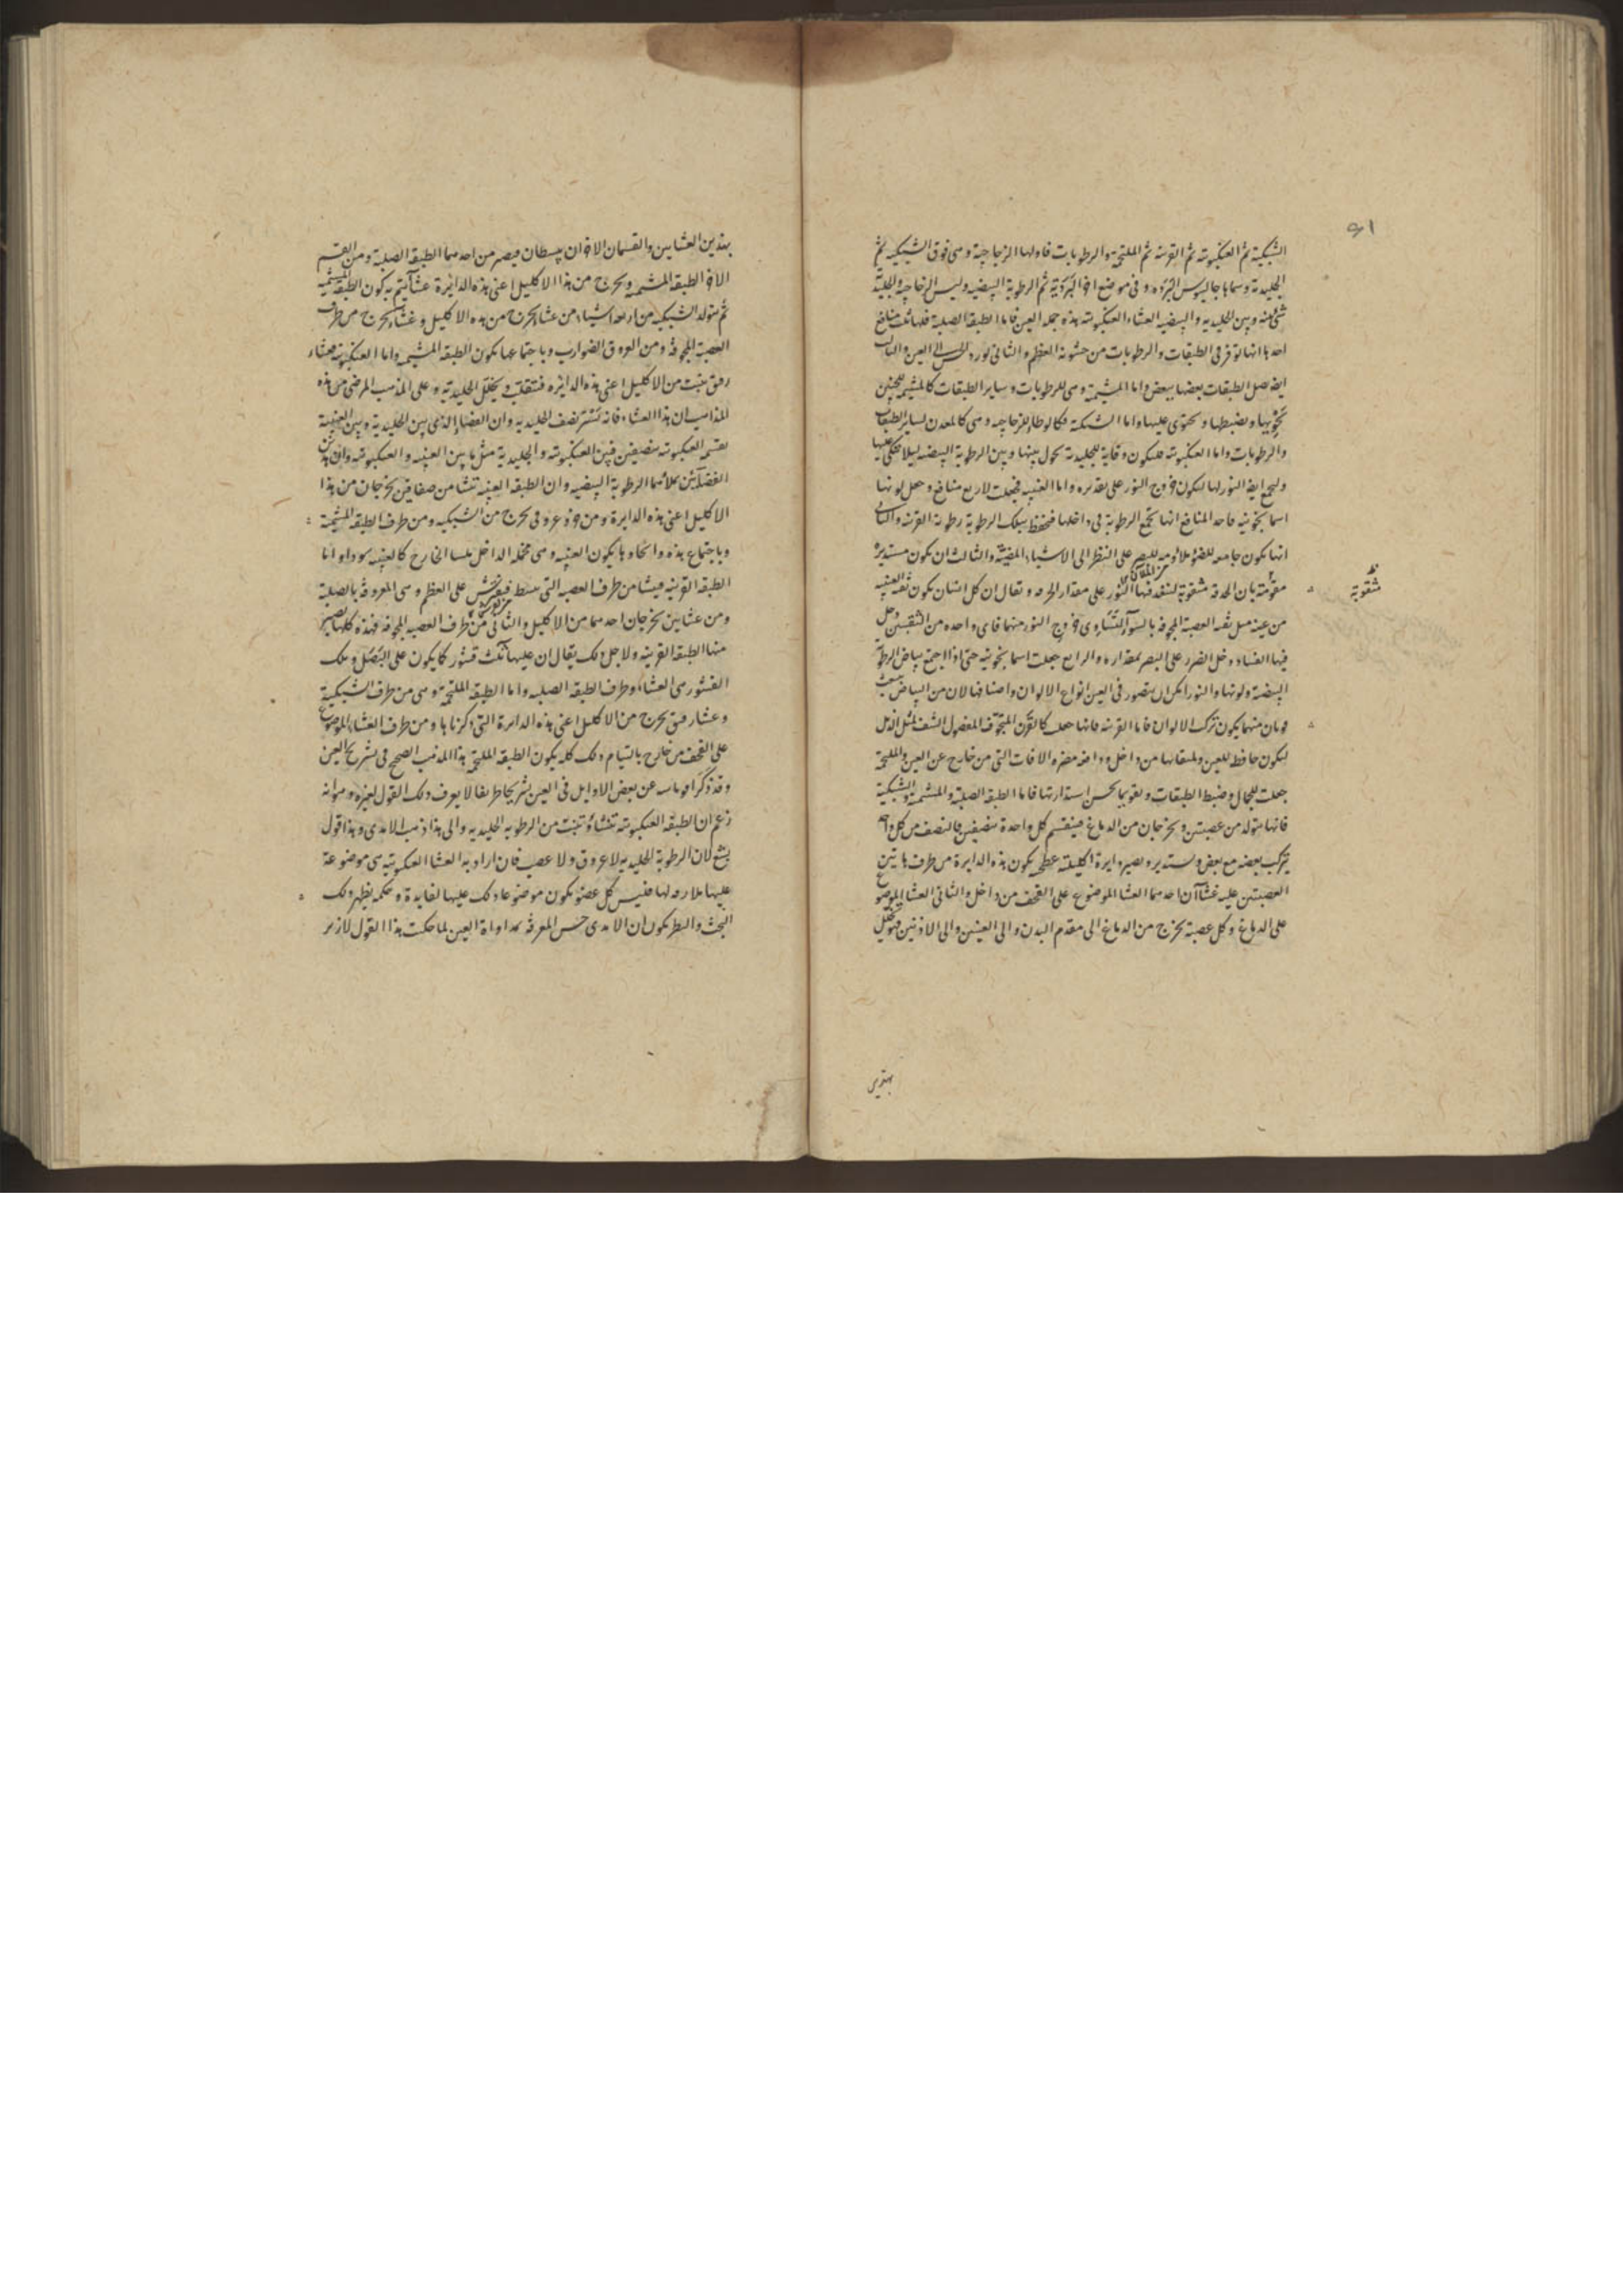 الشبكية ثم العنكبوتية ثم القرنية ثم الملتحمة والرطوبات فاولها الزجاجية وهى فوق الشبكية ثم
الجليدية وسماها جالينوس البردة وفى موضع اخر البردية ثم الرطوبة البيضية وليس الزجاجية والجلية
شى وبين الجليديه والبيضيه العشاء العنكبوتيه هذه جمله العين فاما الطبقة الصلبة فلها ثلث منافع
احدها انها توقى الطبقات والرطوبات من خشونة العظم والثانى تورد الحس الى العين والثالث
ايضا تصل الطبقات بعضها ببعض واما المشيمة وهى للرطوبات وساير الطبقات كالمشيمه للجنين
تحويها وتضبطها وتحتوى عليها واما الشبكة فكالوطا للزجاجيه وهى كالمعدن لساير الطبقات
والرطوبات واما العنكبوتيه فلتكون وقاية للجليدية تحول بينها وبين الرطوبة البيضيه ليلا
وليجمع ايضا النور لها ليكون خروج النور على تقديره واما العنبيه فجعلت لاربع منافع وجعل لونها
اسمانجونيه فاحد المنافع انها تجمع الرطوبة فى داخلها فتحفظ بتلك الرطوبة رطوبة القرنيه والثانى
انها تكون جامعه للضوء ملاومه للبصر على النظر الى الاشياء المضيئة والثالث ان تكون مستديرة
بان الحدقة مثقوبة لينفذ فيها النور على مقدار الخرم ويقال ان كل انسان يكون ثقب العنبيه
من عينه مثل ثقب العصبة المجوفة بالسواء لتساوى خروج النور منهما فاى واحده من الثقبين دخل
فيها الفساد دخل الضرر على البصر بمقداره والرابع جعلت اسمانجونيه حتى اذا اجتمع بياض الرطوبة
البيضية ولونها والنور امكن ان يتصور فى العين انواع الالوان واصنافها لان من البياض
منهما يكون تركب الالوان فاما القرنيه فانها جعلت كالقرن المنجوف المصقول
ليكون حافظه للعين من داخل ودافعه مضره الافات التى من خارج عن العين والملتحمة
جعلت للجمال وضبط الطبقات لحسن استدارتها فاما الطبقة الصلبة والمشيمة والشبكية
فانها تتولد من عصبتين ويخرجان من الدماغ فينقسم كل واحدة بنصفين فالنصف من كل واحد
يتركب بعضه مع بعض ويستدير ويصير دايرة اكليلية يكون هذه الدايرة من طرف هاتين
العصبتين عليه غشاآن احدهما العشا الموضوع على القحف من داخل والثانى العشا الموضوع
على الدماغ وكل عصبة تخرج من الدماغ الى مقدم البدن والى العينين والى الاذنين
مثقوبة
بهذين
بهذين العشايين والقسمان الاخران ينبسطان فيصير من احدهما الطبقة الصلبة ومن القسم
الاخر الطبقة المشيمة ويخرج من هذا الاكليل اعنى هذه الدايرة عشاء يتم به كون الطبقة المشيمية
ثم تتولد الشبكيه من اربعة اشياء من عشاء يخرج من هذه الاكليل وغشاء يخرج من طرف
العصبة المجوفة ومن العروق الضوارب وباجتماعها يكون الطبقة المشيمة واما العنكبوتية فعشاء
رقيق ينبت من الاكليل اعنى هذه الدايره الجليدية وعلى المذهب المرضى من هذه
المذاهب ان هذا العشاء فانه يستر نصف الجليديه وان الفضاء الذى بين الجليدية وبين العنبية
تقسمه العنكبوتيه بنصفين فبين العنكبوتيه والجليدية مثل ما بين العنبيه والعنكبوتيه وان هذين
الفضائين ملاهما الرطوبة البيضيه وان الطبقة العنبيه تنشا من صفاقين يخرجان من هذا
الاكليل اعنى هذه الدايرة ومن عروق تخرج من الشبكيه ومن طرف الطبقة المشيمة
وباجتماع هذه واتحادها يكون العنبيه وهى مخمله الداخل ملسا الخارج كالعنبه سودا واما
الطبقة القرنيه فينشا من طرف العصبه التى تنبسط على العظم وهى المعروفة بالصلبة
ومن عشايين يخرجان احدهما من الاكليل والثانى من طرف العصبه المجوفه فهذه كلها تصير
منها الطبقة القرنيه ولاجل ذلك يقال ان عليها ثلث قشور كما يكون على البصل وتلك
القشور هى العشاء وطرف الطبقة الصلبه واما الطبقة الملتحمة وهى من طرف الشبكية
وعشاء رقيق يخرج من الاكليل اعنى هذه الدايرة التى ذكرناها ومن طرف العشاء الموضوع
على القحف من خارج بالتيام ذلك كله يكون الطبقة الملتحمة هذا المذهب الصحيح فى تشريح العين
وقد ذكر عن بعض الاوايل فى العين تشريحا طريفا لا يعرف ذلك القول لغيره وهو انه
زعم ان الطبقة العنكبوتيه تنشاء وتنبت من الرطوبه الجليديه والى هذا ذهب الامدى وهذا قول
بشع لان الرطوبة الجليديه لا عروق ولا عصب فان اراد به العشا العنكبوتيه هى موضوعة
عليها ملازمه لها فليس كل عضو يكون موضوعا ذلك عليها لفايدة وحكمه يظهر ذلك
البحث والنظر يكون ان الامدى حسن المعرفة بمداواة العين لما حكيت هذا القول